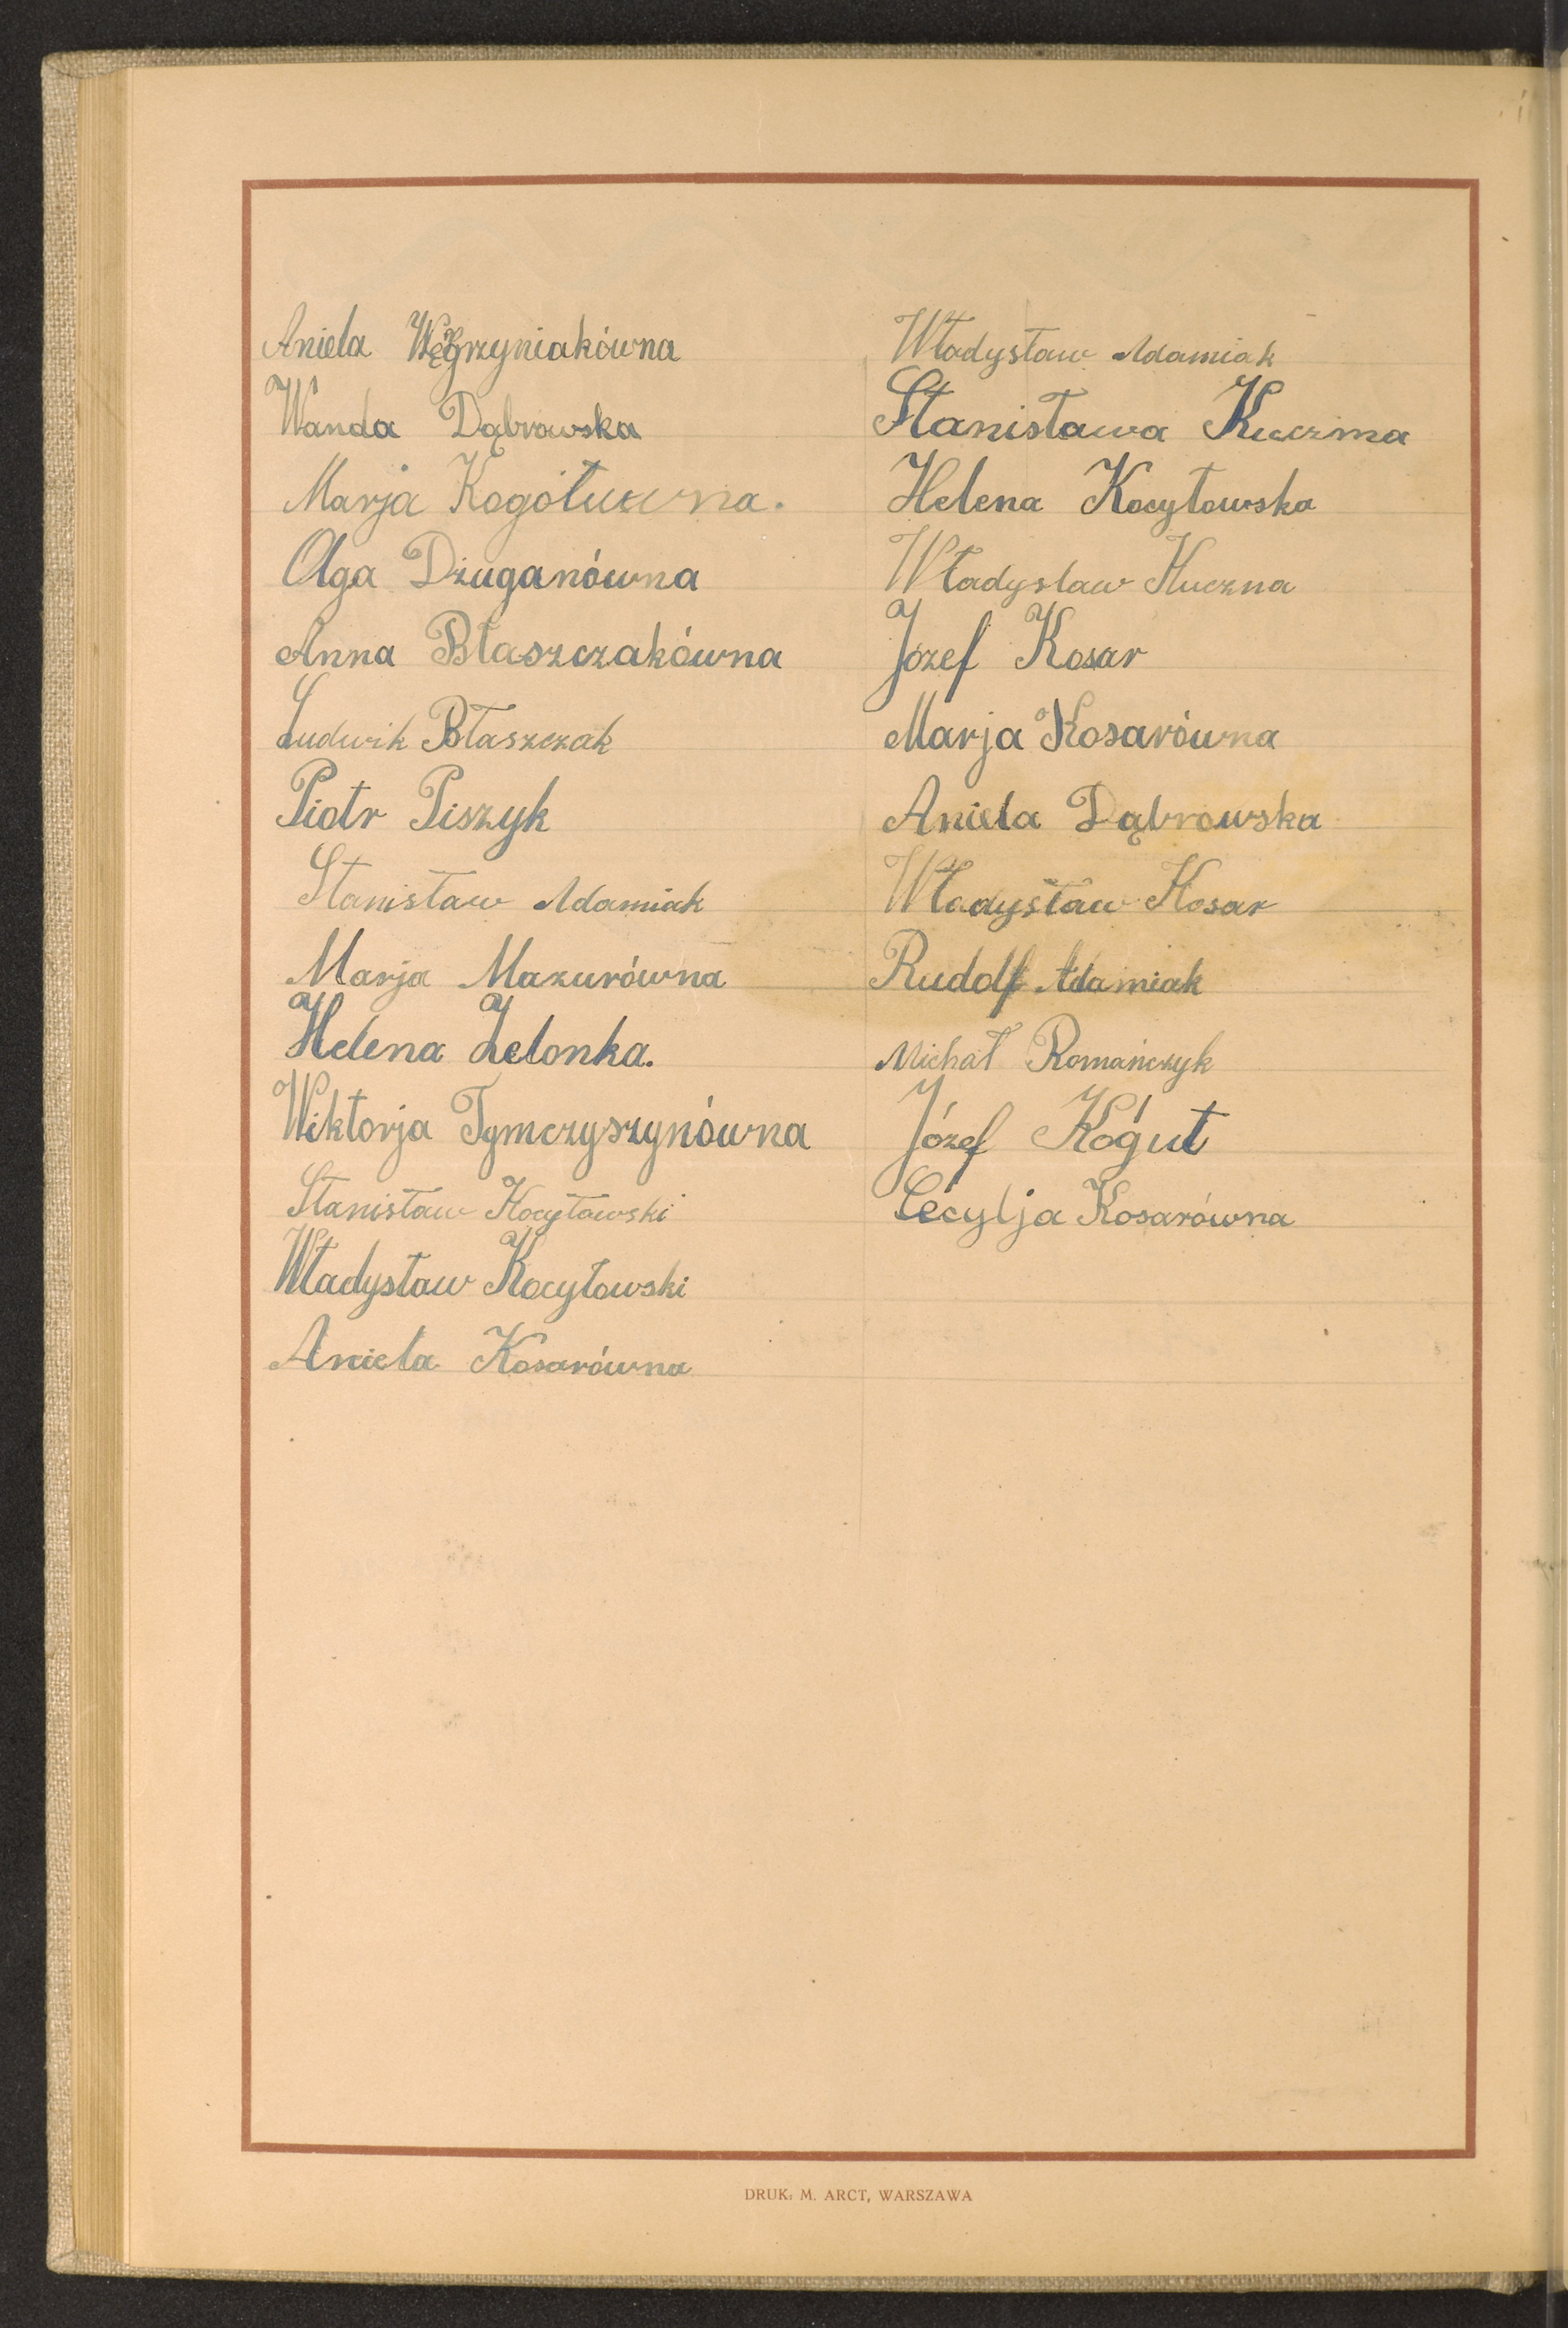 Aniela Węgrzyniakówna
Wanda Dąbrowska
Marja Kogótuwna.
Olga Dżuganówna
Anna Błaszczakówna
Ludwik Błaszczak
Piotr Piszyk
Stanisław Adamiak
Marja Mazurówna
Helena Zelonka.
Wiktorja Tymczyszynówna
Stanisław Kocyłowski
Władysław Kocyłowski
Aniela Kosarówna
Władysław Adamiak
Stanisława Kuczma
Helena Kocyłowska
Władysław Kuczma
Józef Kosar
Marja Kosarówna
Aniela Dąbrowska
Władysław Kosar
Rudolf Adamiak
Michał Romańczyk
Józef Kógut
Cecylja Kosarówna
DRUK: M. ARCT, WARSZAWA